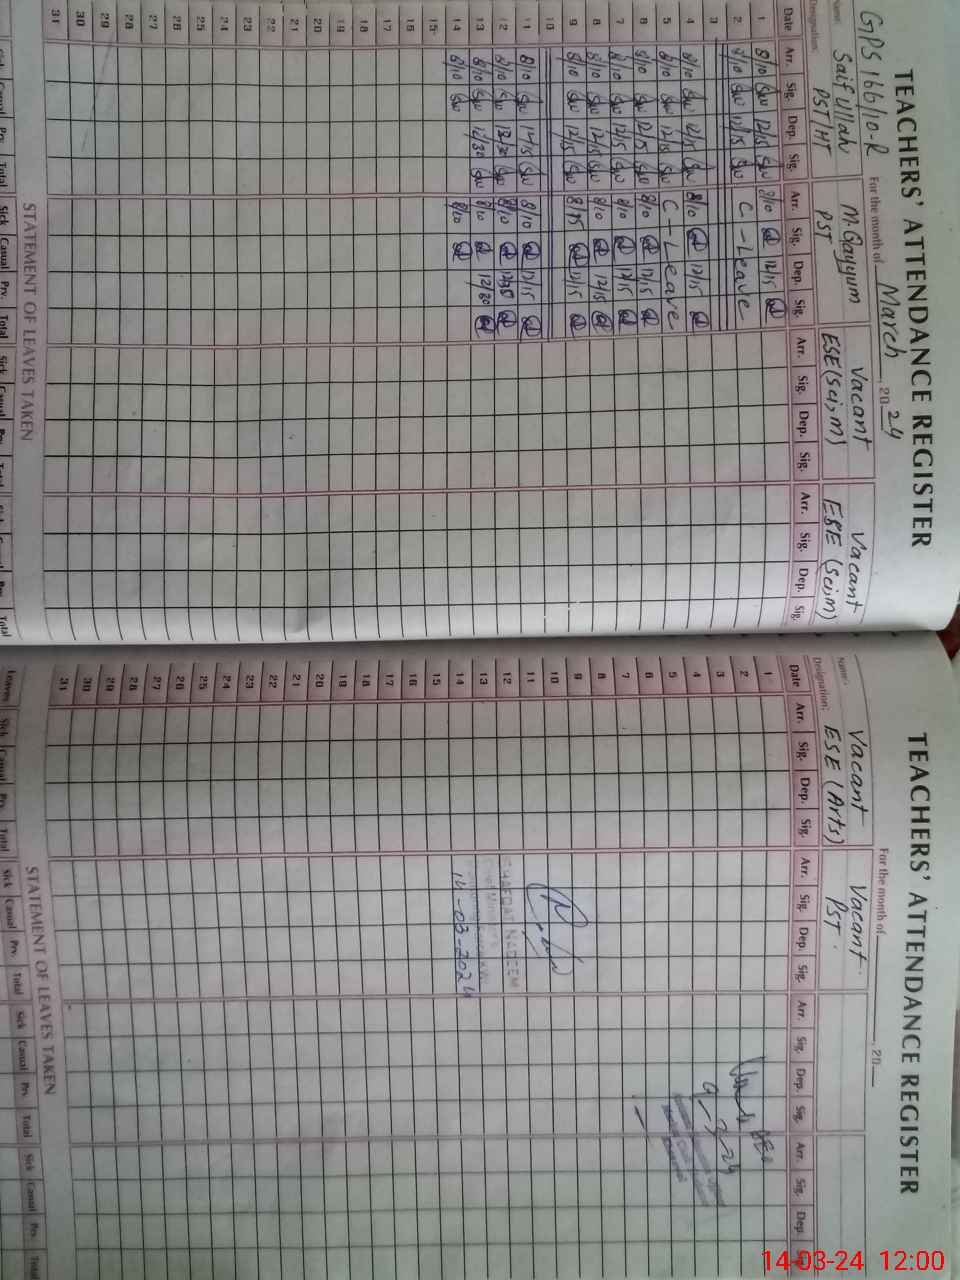 TEACHERS' ATTENDANCE REGISTER
GPS 166/10-R For the month of March, 2024
Name: Saif Ullah M. Qayyum Vacant Vacant
Designation: PST/HT PST ESE (Sci, M) ESE (Sci, M)
Date Arr. Sig. Dep. Sig. Arr. Sig. Dep. Sig. Arr. Sig. Dep. Sig. Arr. Sig. Dep. Sig.
1 8/10 12/15 8/10 12/15
2 8/10 12/15 C-Leave
3
4 8/10 12/15 8/10 12/15
5 8/10 12/15 C-Leave
6 8/10 12/15 8/10 12/15
7 8/10 12/15 8/10 12/15
8 8/10 12/15 8/10 12/15
9 8/10 12/15 12/15
10
11 8/10 12/15 8/10 12/15
12 8/10 12/30 8/10 12/30
13 8/10 12/30 8/10 12/30
14 8/10 8/10
15
16
17
18
19
20
21
22
23
24
25
26
27
28
29
30
31
STATEMENT OF LEAVES TAKEN
Sick Casual Prv. Total Sick Casual Prv. Total Sick Casual Prv. Total Sick Casual Prv. Total
TEACHERS' ATTENDANCE REGISTER
For the month of , 20
Name: Vacant Vacant
Designation: ESE (Arts) PST
Date Arr. Sig. Dep. Sig. Arr. Sig. Dep. Sig. Arr. Sig. Dep. Sig. Arr. Sig. Dep. Sig.
1
2
3
4
5
6
7
8
9
10
11
12
13
14
15
16
17
18
19
20
21
22
23
24
25
26
27
28
29
30
31
SHAFQAT NADEEM
14-03-2024
9/3/24
STATEMENT OF LEAVES TAKEN
Leaves Sick Casual Prv. Total Sick Casual Prv. Total Sick Casual Prv. Total Sick Casual Prv. Total
14-03-24 12:00